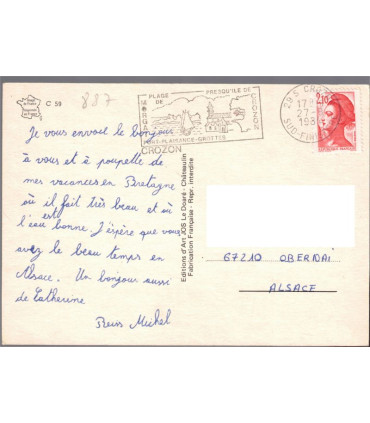 C 59
887
PLAGE DE
PRESQU'ILE DE
MORGAT
CROZON
PORT-PLAISANCE-GROTTES
CROZON
29 S CROZON
17 H
27-
198
SUD-FIN
2,10
Je vous envoie le bonjour
à vous et à poupelle de
mes vacances en Bretagne
où il fait très beau et où
l'eau est bonne. J'espère que vous
avez le beau temps en
Alsace. Un bonjour aussi
de Catherine
Reiss Michel
Editions d'Art JOS Le Doaré - Châteaulin
Fabrication Française - Repr. interdite
67210 OBERNAI
ALSACE